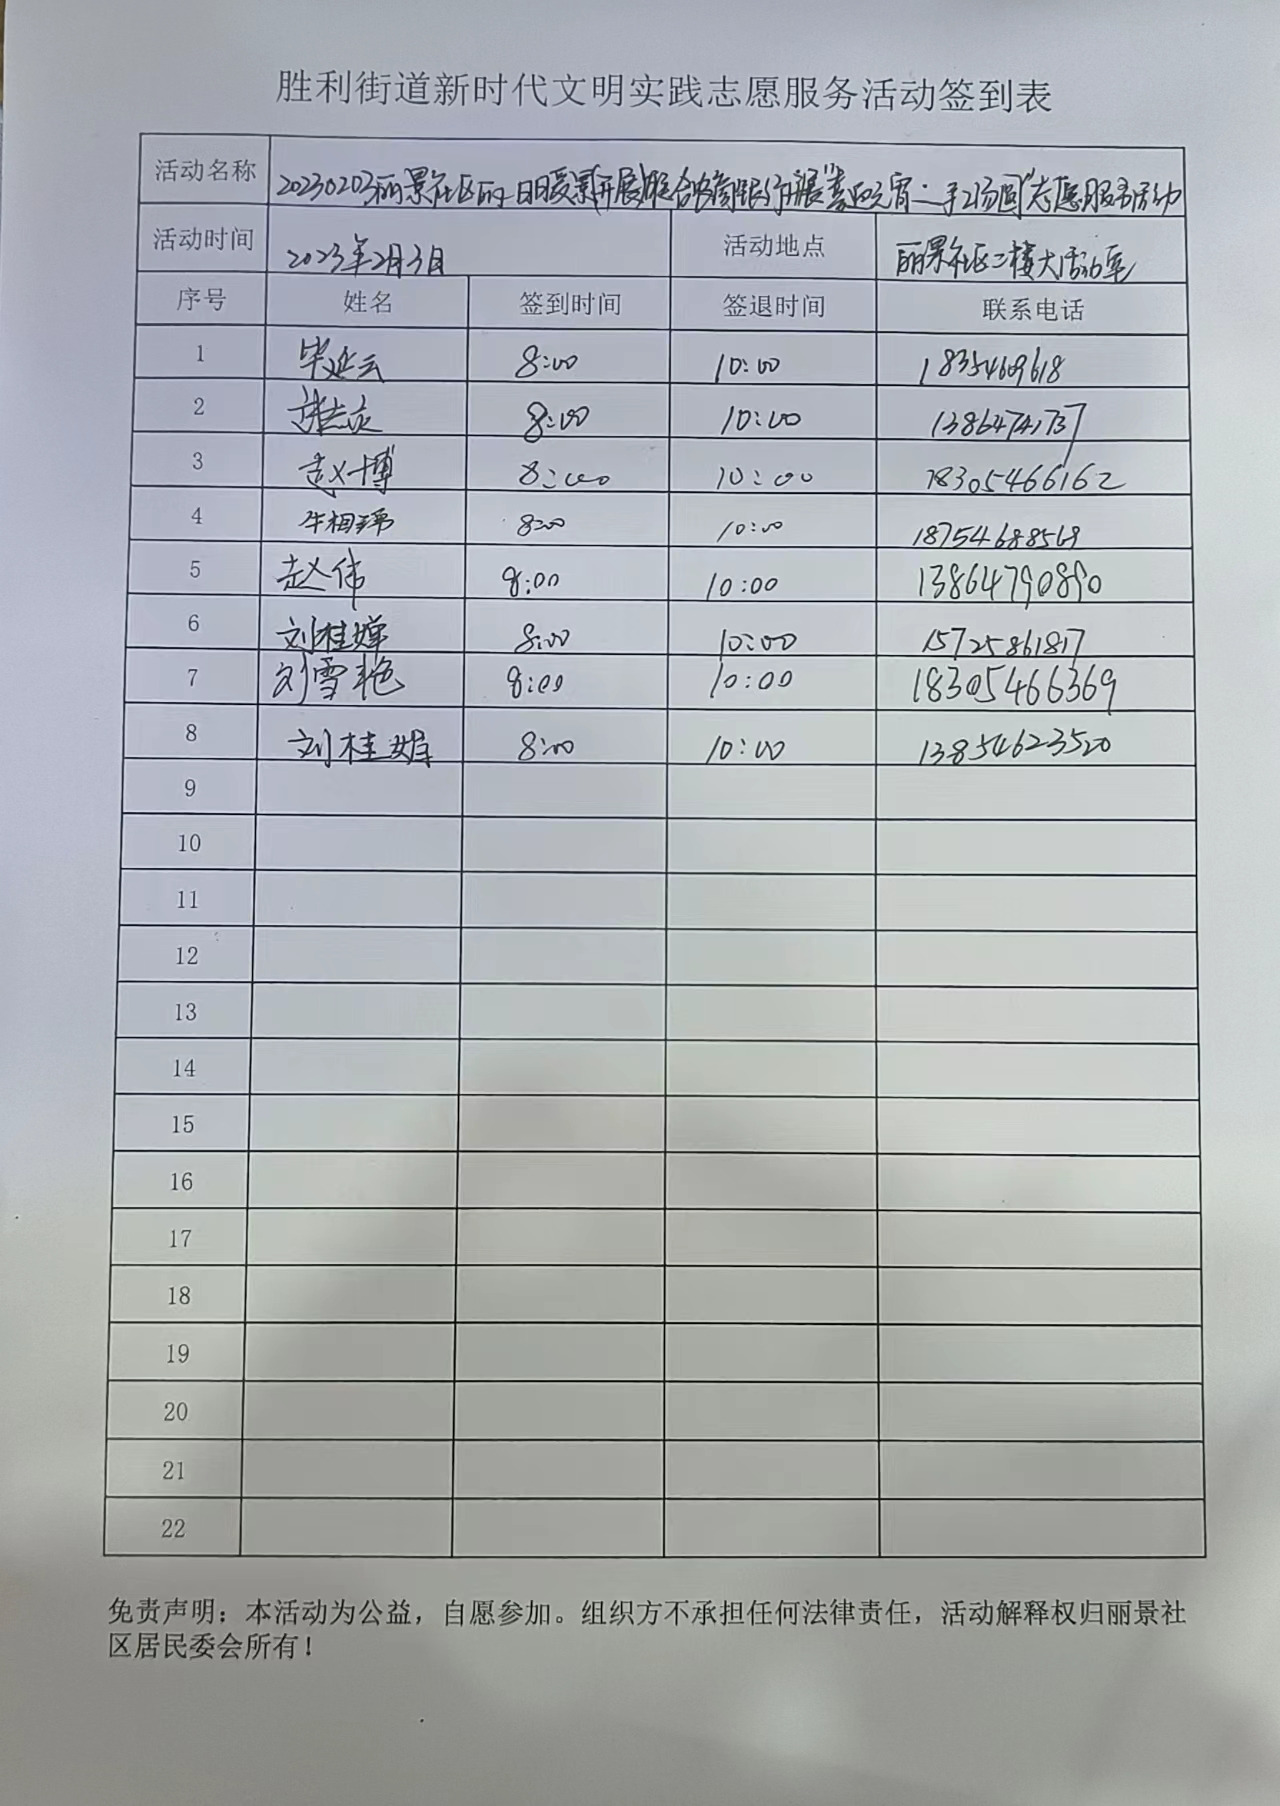 胜利街道新时代文明实践志愿服务活动签到表
活动名称 20230203丽景社区 暖景 开展 银行开展 元宵 手工汤圆"志愿服务活动
活动时间 2023年2月3日 活动地点 丽景社区二楼大活动室
序号 姓名 签到时间 签退时间 联系电话
1 毕延云 8:00 10:00 18354609618
2 8:00 10:00 13864741737
3 赵博 8:00 10:00 18305466162
4 牛相瑞 8:00 10:00 18754688569
5 赵伟 8:00 10:00 13864790890
6 刘桂婵 8:00 10:00 15725861817
7 刘雪艳 8:00 10:00 18305466369
8 刘桂娟 8:00 10:00 13854623520
9
10
11
12
13
14
15
16
17
18
19
20
21
22
免责声明：本活动为公益，自愿参加。组织方不承担任何法律责任，活动解释权归丽景社
区居民委会所有！